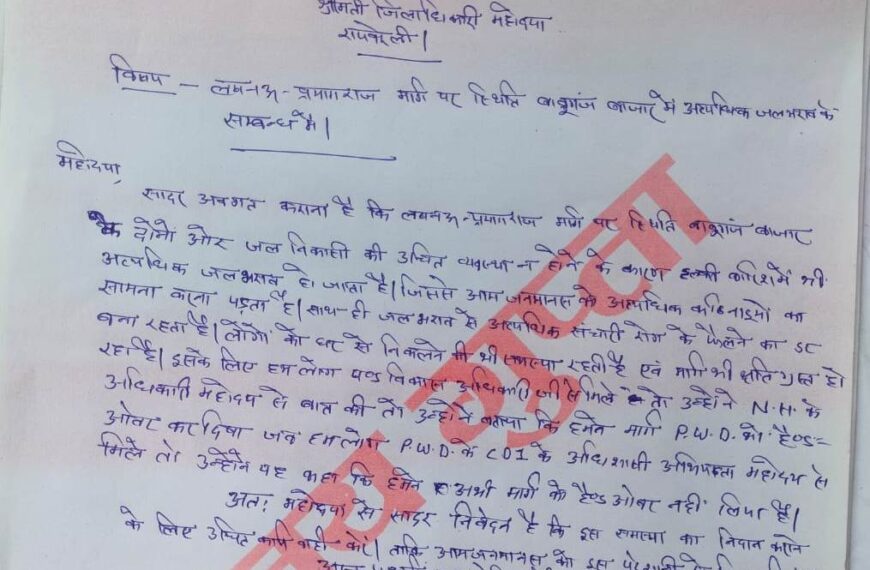 श्रीमती जिलाधिकारी महोदया
रायबरेली।
विषय - लखनऊ-प्रयागराज मार्ग पर स्थिति बाबूगंज बाजार में अत्यधिक जलभराव के
सम्बन्ध में।
महोदया,
सादर अवगत कराना है कि लखनऊ-प्रयागराज मार्ग पर स्थिति बाबूगंज बाजार
के दोनों ओर जल निकासी की उचित व्यवस्था न होने के कारण हल्की बारिश में भी
अत्यधिक जलभराव हो जाता है। जिससे आम जनमानस को अत्यधिक कठिनाइयों का
सामना करना पड़ता है। साथ-ही जलभराव से अत्यधिक संचारी रोग के फैलने का डर
बना रहता है। लोगों को घर से निकलने में भी समस्या रहती है एवं मार्ग भी क्षतिग्रस्त हो
रहा है। इसके लिए हम लोग खण्ड विकास अधिकारी जी से मिले तो उन्होंने N.H. के
अधिकारी महोदय से बात की तो उन्होंने बताया कि हमने मार्ग P.W.D. को हैण्ड-
ओवर कर दिया जब हम लोग P.W.D. के CD1 के अधिशासी अभियन्ता महोदय से
मिले तो उन्होंने यह कहा कि हमने अभी मार्ग को हैण्ड ओवर नहीं लिया है।
अतः महोदया से सादर निवेदन है कि इस समस्या का निदान करने
के लिए उचित कार्यवाही करें। ताकि आमजनमानस को इस परेशानी
गुप्ता